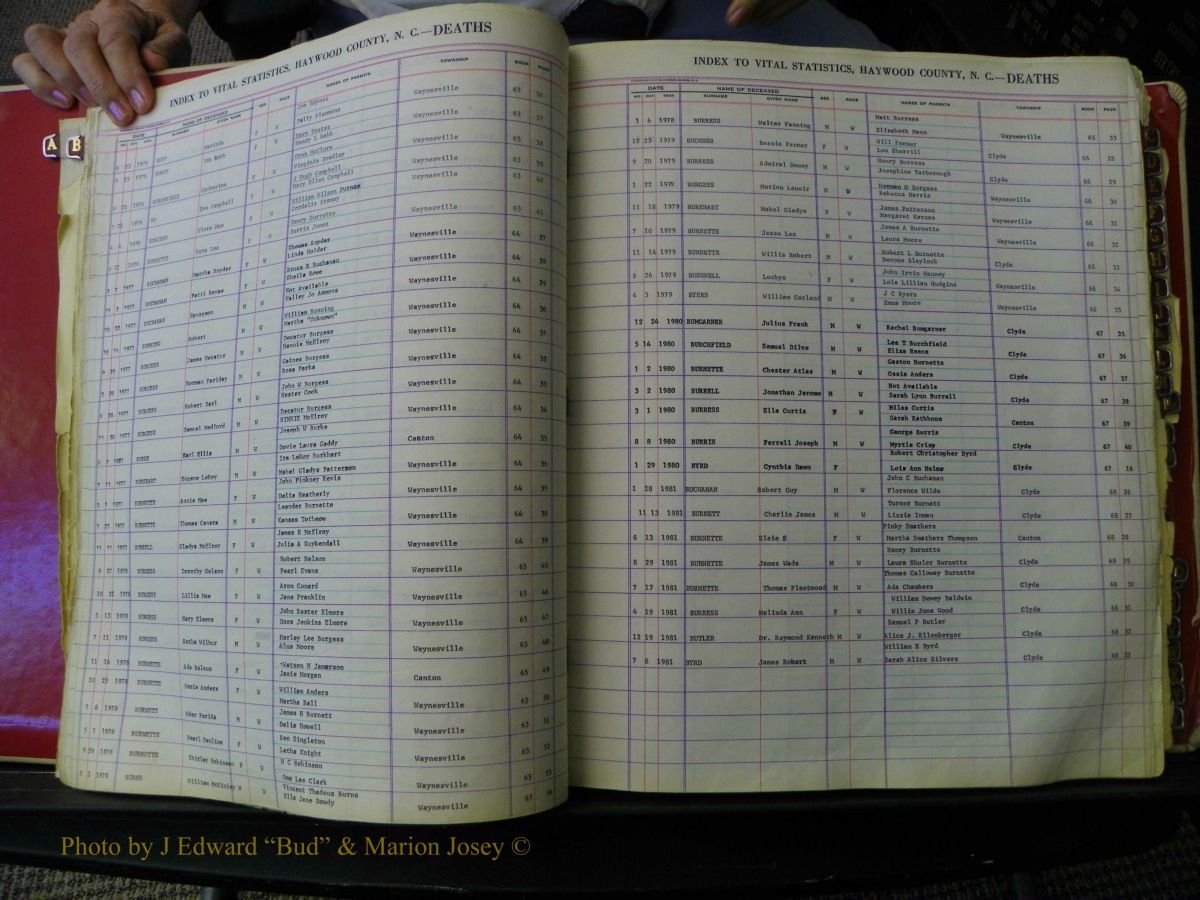 INDEX TO VITAL STATISTICS, HAYWOOD COUNTY, N. C.—DEATHS
DATE NAMES OF DECEASED SEX RACE NAMES OF PARENTS TOWNSHIP BOOK PAGE
MO. DAY YEAR SURNAME GIVEN NAME
A B
Joe Haynes Waynesville 63 36
Polly Plemmons
Ida Webb F W Mary Foster 63 37
Henry L Webb Waynesville
Oren McClure 63 38
Virginia Bradley Waynesville 63 39
BURCHFIELD Catherine F W J Hugh Campbell
Mary Ellen Campbell Waynesville 63 40
Eva Campbell F W William Wilson Putnam
Cordelia Stamey
BURGESS Flora Mae F W Henry Burnette Waynesville 63 41
Bertie Jones
BURNETTE Thomas Snyder Waynesville 64 27
Linda Holder
1977 BUCHANAN Martha Snyder F W Bruce B Buchanan Waynesville 64 28
Sheila Rowe
1977 BUCHANAN Patti Renae F W Not Available Waynesville 64 29
Valley Jo Ammons
1977 BUCHANAN Spurgeon M W William Bunning Waynesville 64 30
Martha "Unknown"
1977 BUNNING Robert M W Decatur Burgess Waynesville 64 31
Nannie McElroy
1977 BURGESS James Decatur M W Gaines Burgess Waynesville 64 32
Rosa Parks
1977 BURGESS Norman Fariday M W John W Burgess Waynesville 64 33
Hester Cook
1977 BURGESS Robert Earl M W Decatur Burgess Waynesville 64 34
NINNIE McElroy
1977 BURGESS Samuel Medford M W Joseph W Burke
Dovie Laura Gaddy Canton 64 35
BURKE Earl Ellis M W Ira LeRoy Burkhart
Mabel Gladys Patterson Waynesville 64 36
1977 BURKHART Eugene LeRoy M W John Pinkney Kevis
Delia Weatherly Waynesville 64 37
1977 BURNETTE Annie Mae F W Leander Burnette
Kansas Totheow Waynesville 64 38
1977 BURNETTE Thomas Canera M W James R McElroy
Julia A Kuykendall Waynesville 64 39
1977 BURRELL Gladys McElroy F W Robert Nelson
Pearl Evans Waynesville 65 45
1978 BURGESS Dorothy Nelson F W Aron Conard
Jane Franklin Waynesville 65 46
1978 BURGESS Lillie Mae F W John Baxter Elmore
Dora Jenkins Elmore Waynesville 65 47
1978 BURGESS Mary Elmore F W Harley Lee Burgess
Alma Moore Waynesville 65 48
7 11 1978 BURGESS Retha Wilbur M W Watson N Jamerson
Janie Morgan Canton 65 49
11 14 1978 BURNETTE Ada Balous F W William Anders
Martha Ball Waynesville 65 50
10 23 1978 BURNETTE Ossie Anders F W James H Burnett
Delia Howell Waynesville 65 51
8 1978 BURNETT Oder Ferida M W Ben Singleton
Letha Knight Waynesville 65 52
1978 BURNETTE Pearl Pauline F W H C Robinson
Oma Lee Clark Waynesville 65 53
9 29 1978 BURNETTE Shirley Robinson F W Vincent Thadeus Burns
Ella Jane Dowdy Waynesville 65 54
3 1978 BURNS William McKinley M W
INDEX TO VITAL STATISTICS, HAYWOOD COUNTY, N. C.—DEATHS
DATE NAME OF DECEASED SEX RACE NAMES OF PARENTS TOWNSHIP BOOK PAGE
MO. DAY YEAR SURNAME GIVEN NAME
1 6 1978 BURRESS Walter Fanning M W Matt Burress
Elizabeth Mann Waynesville 65 55
10 23 1979 BUCKNER Bessie Farmer F W Will Farmer
Lou Sherrill Clyde 66 28
9 20 1979 BURRESS Admiral Dewey M W Henry Burress
Josephine Yarborough Clyde 66 29
1 22 1979 BURGESS Marion Lenoir M W Herman O Burgess
Rebecca Harris Waynesville 66 30
11 18 1979 BURKHART Mabel Gladys F W James Patterson
Margaret Karnes Waynesville 66 31
7 10 1979 BURNETTE Jesse Lee M W James A Burnette
Laura Moore Waynesville 66 32
11 14 1979 BURNETTE Willis Robert M W Robert L Burnette
Devona Blaylock Clyde 66 33
6 26 1979 BUSHNELL Lockye F W John Irvin Hanney
Lola Lillian Hudgins Waynesville 66 34
4 3 1979 BYERS William Garland M W J C Byers
Emma Moore Waynesville 66 35
12 24 1980 BUMGARNER Julius Frank M W Rachel Bumgarner Clyde 67 35
5 14 1980 BURCHFIELD Samuel Dilve M W Lee T Burchfield
Eliza Reece Clyde 67 36
1 2 1980 BURNETTE Chester Atlas M W Gaston Burnette
Ossie Anders Clyde 67 37
3 2 1980 BURRELL Jonathan Jerome M W Not Available
Sarah Lynn Burrell Clyde 67 38
3 1 1980 BURRESS Ella Curtis F W Milas Curtis
Sarah Rathbone Canton 67 39
8 8 1980 BURRIS Ferrell Joseph M W George Burris
Myrtle Crisp Clyde 67 40
1 29 1980 BYRD Cynthia Dawn F Robert Christopher Byrd
Lois Ann Helms Clyde 67 16
1 28 1981 BUCHANAN Robert Guy M W John C Buchanan
Florence Wilds Clyde 68 26
11 13 1981 BURNETT Charlie James M W Turner Burnett
Lizzie Inman Clyde 68 27
6 13 1981 BURNETTE Elsie S F W Pinky Smathers
Martha Smathers Thompson Canton 68 28
8 29 1981 BURNETTE James Wade M W Henry Burnette
Laura Shuler Burnette Clyde 68 29
7 17 1981 BURNETTE Thomas Fleetwood M W Thomas Calloway Burnette
Ada Chambers Clyde 68 30
4 19 1981 BURRESS Melinda Ann F W William Dewey Baldwin
Willie June Wood Clyde 68 31
12 19 1981 BUTLER Dr. Raymond Kenneth M W Samuel P Butler
Alice J. Ellenberger Clyde 68 32
7 6 1981 BYRD James Robert M W William E Byrd
Sarah Alice Silvers Clyde 68 33
Photo by J Edward “Bud” & Marion Josey ©